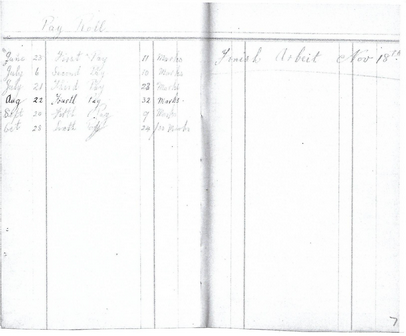 Pay Roll.
June 23 First Pay 11 Marks
July 6 Second Pay 10 Marks
July 28 Third Pay 28 Marks
Aug 22 Fourth Pay 32 Marks
Sept 20 Fifth Pay 9 Marks
Oct 28 Sixth 20 Marks
Finish Arbeit Nov 18th
7